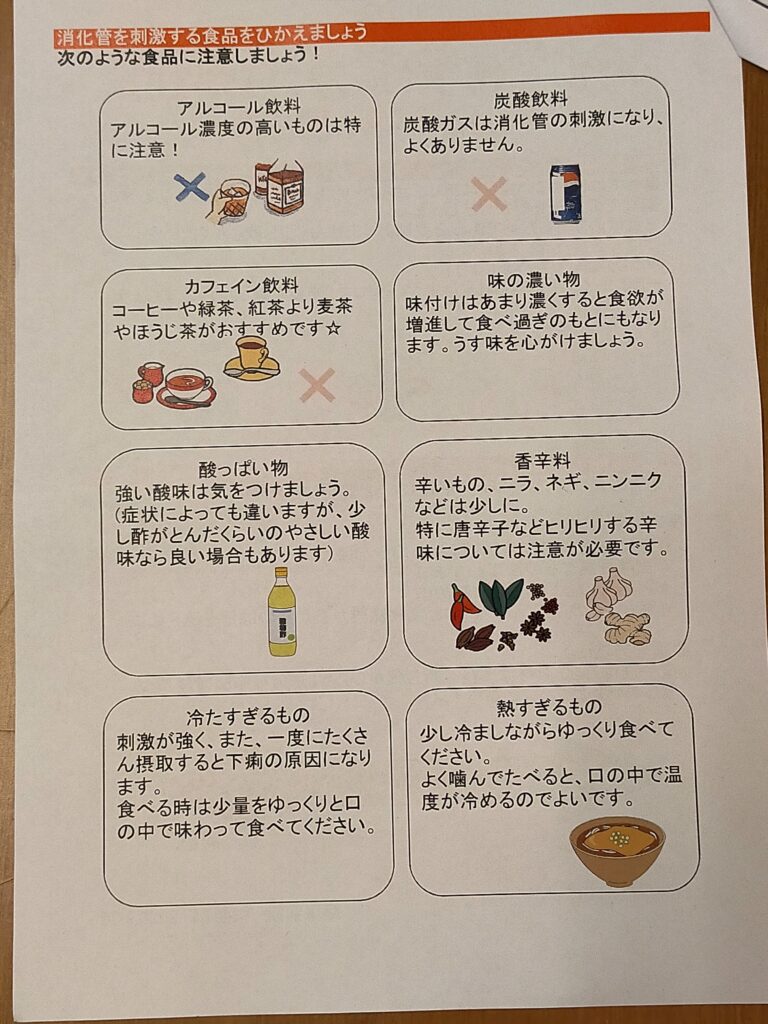 消化管を刺激する食品をひかえましょう
次のような食品に注意しましょう！
アルコール飲料
アルコール濃度の高いものは特
に注意！
炭酸飲料
炭酸ガスは消化管の刺激になり、
よくありません。
カフェイン飲料
コーヒーや緑茶、紅茶より麦茶
やほうじ茶がおすすめです☆
味の濃い物
味付けはあまり濃くすると食欲が
増進して食べ過ぎのもとにもなり
ます。うす味を心がけましょう。
酸っぱい物
強い酸味は気をつけましょう。
(症状によっても違いますが、少
し酢がとんだくらいのやさしい酸
味なら良い場合もあります)
香辛料
辛いもの、ニラ、ネギ、ニンニク
などは少しに。
特に唐辛子などヒリヒリする辛
味については注意が必要です。
冷たすぎるもの
刺激が強く、また、一度にたくさ
ん摂取すると下痢の原因になり
ます。
食べる時は少量をゆっくりと口
の中で味わって食べてください。
熱すぎるもの
少し冷ましながらゆっくり食べて
ください。
よく噛んでたべると、口の中で温
度が冷めるのでよいです。